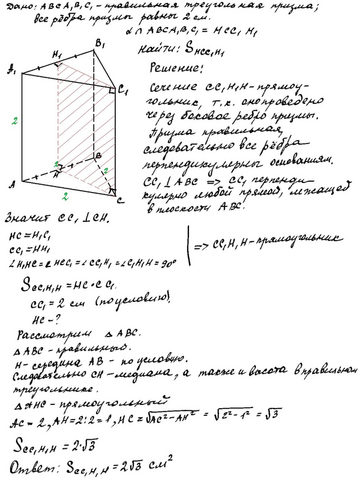 Дано: ABCA₁B₁C₁ - правильная треугольная призма;
все рёбра призмы равны 2 см.
α ∩ ABCA₁B₁C₁ = HCC₁H₁
Найти: S HCC₁H₁
Решение:
Сечение CC₁H₁H - прямоу-
гольник, т.к. оно проведено
через боковое ребро призмы.
Призма правильная,
следовательно все рёбра
перпендикулярны основаниям.
CC₁ ⊥ ABC => CC₁ перпенди-
кулярно любой прямой, лежащей
в плоскости ABC.
A₁
H₁
B₁
C₁
2
A
H
B
2
2
C
Значит CC₁ ⊥ CH.
HC = H₁C₁
CC₁ = HH₁
∠H₁HC = ∠HCC₁ = ∠CC₁H₁ = ∠C₁H₁H = 90°
=> CC₁H₁H - прямоугольник
S CC₁H₁H = HC · CC₁
CC₁ = 2 см (по условию)
HC - ?
Рассмотрим △ ABC.
△ ABC - правильный.
H - середина AB - по условию.
Следовательно CH - медиана, а также и высота в правильном
треугольнике.
△ AHC - прямоугольный
AC = 2, AH = 2:2 = 1, HC = √AC² - AH² = √2² - 1² = √3
S CC₁H₁H = 2·√3
Ответ: S CC₁H₁H = 2√3 см²